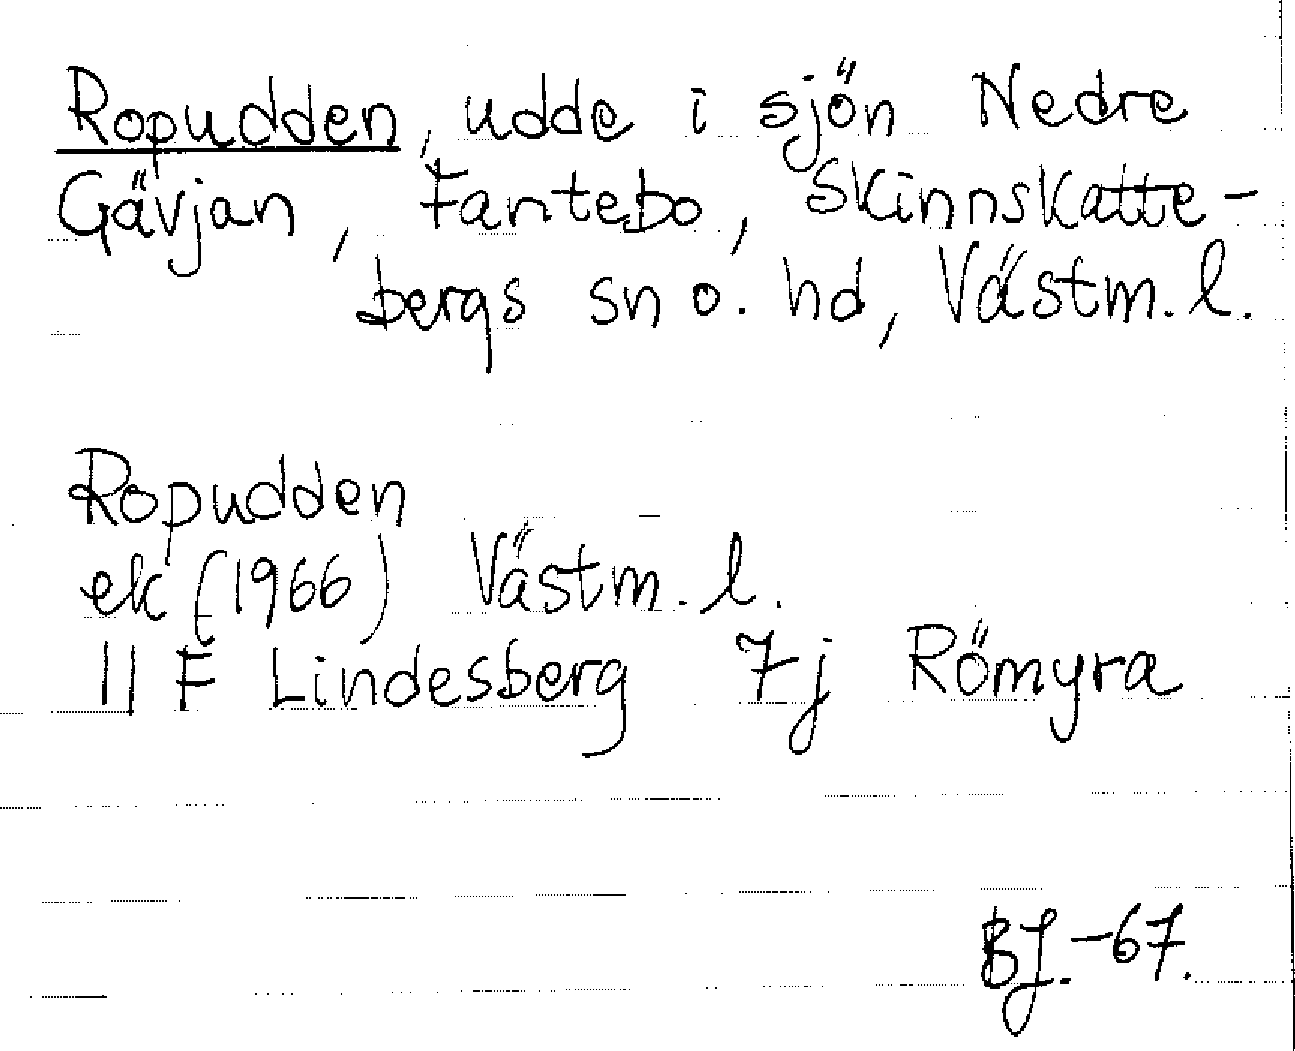 Ropudden, udde i sjön Nedre
Gävjan, Fantebo, Skinnskatte-
bergs sn o. hd, Västm. l.
Ropudden
ek (1966) Västm. l.
11 F Lindesberg 7j Römyra
BJ.-67.